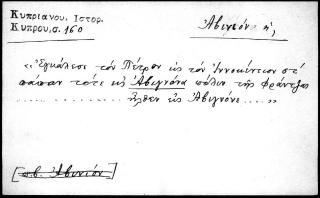 Κυπριανου. Ιστορ.
Κυπρου, σ. 160
Ἀβινιόνα, ἡ,
«Ἐγκάλεσε τὸν Πέτρον εἰς τὸν Ἰννοκέντιον στ΄
πάπαν τότε εἰς Ἀβιγνόνα πόλιν τῆς Φράντζας
ἦλθεν εἰς Ἀβιγνόνε.....»
[π.β. Ἀβινιόν]